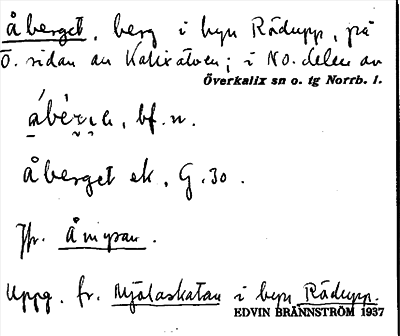 åberget, berg i byn Rödupp, på
Ö. sidan av Kalixälven; i NO. delen av
Överkalix sn o. tg Norrb. l.
bf. n.
åberget ek, G. 30.
Jfr. Åmyran.
Uppg. fr. Mjölaskatan i byn Rödupp.
EDVIN BRÄNNSTRÖM 1937